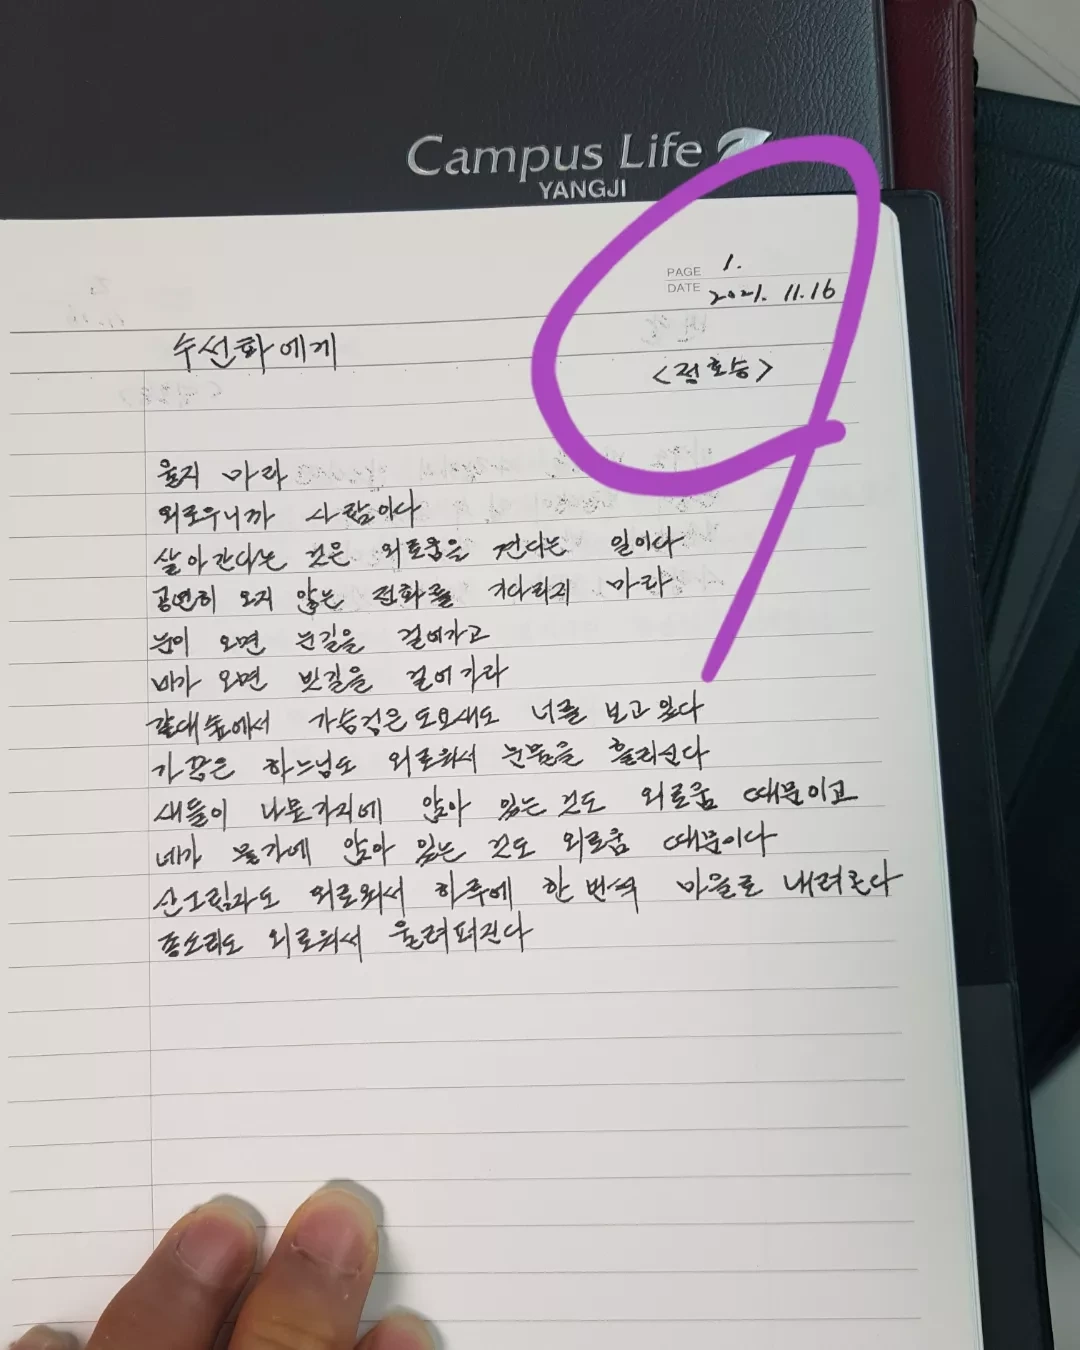 Campus Life
YANGJI
PAGE 1.
DATE 2021. 11.16
수선화에게
<정호승>
울지 마라
외로우니까 사람이다
살아간다는 것은 외로움을 견디는 일이다
공연히 오지 않는 전화를 기다리지 마라
눈이 오면 눈길을 걸어가고
비가 오면 빗길을 걸어가라
갈대숲에서 가슴검은도요새도 너를 보고 있다
가끔은 하느님도 외로워서 눈물을 흘리신다
새들이 나뭇가지에 앉아 있는 것도 외로움 때문이고
네가 물가에 앉아 있는 것도 외로움 때문이다
산그림자도 외로워서 하루에 한 번씩 마을로 내려온다
종소리도 외로워서 울려퍼진다